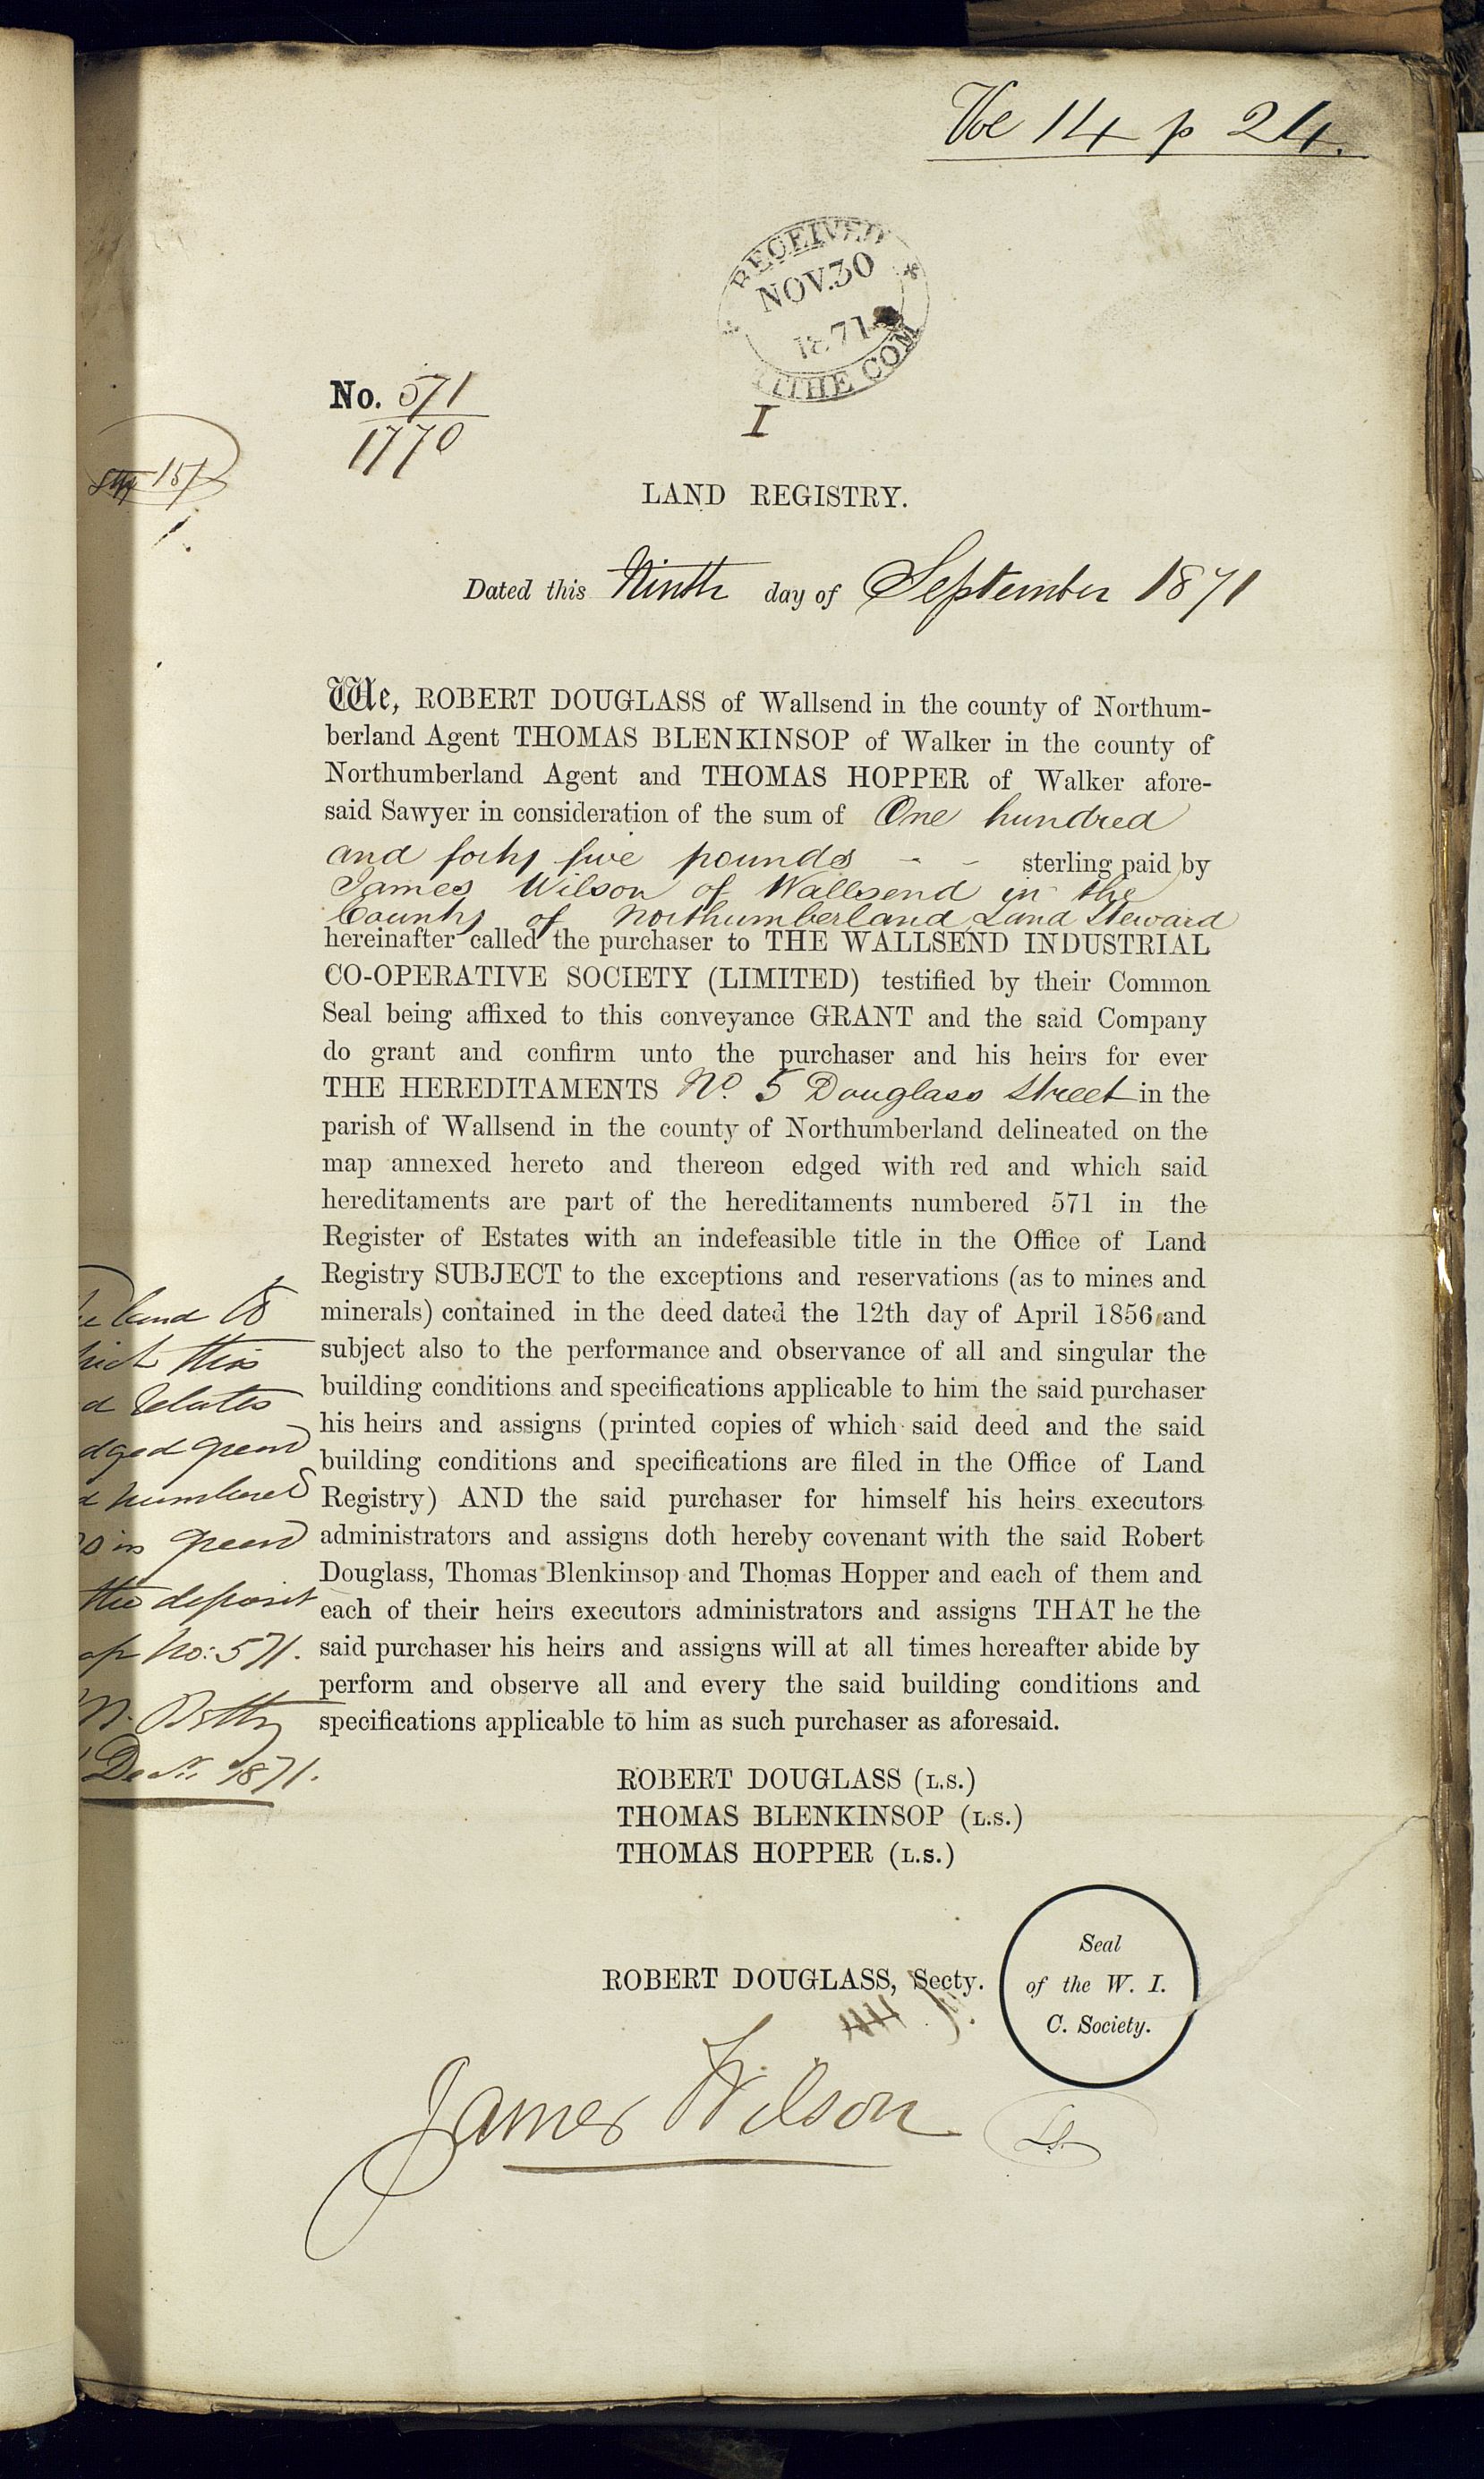 Vol 14 p 24.
RECEIVED
NOV.30
1871
TITHE COM
No. 571
1770
I
LAND REGISTRY.
Dated this Ninth day of September 1871
We, ROBERT DOUGLASS of Wallsend in the county of Northum-
berland Agent THOMAS BLENKINSOP of Walker in the county of
Northumberland Agent and THOMAS HOPPER of Walker afore-
said Sawyer in consideration of the sum of One hundred
and forty five pounds - - sterling paid by
James Wilson of Wallsend in the
County of Northumberland Land Steward
hereinafter called the purchaser to THE WALLSEND INDUSTRIAL
CO-OPERATIVE SOCIETY (LIMITED) testified by their Common
Seal being affixed to this conveyance GRANT and the said Company
do grant and confirm unto the purchaser and his heirs for ever
THE HEREDITAMENTS No. 5 Douglass Street in the
parish of Wallsend in the county of Northumberland delineated on the
map annexed hereto and thereon edged with red and which said
hereditaments are part of the hereditaments numbered 571 in the
Register of Estates with an indefeasible title in the Office of Land
Registry SUBJECT to the exceptions and reservations (as to mines and
minerals) contained in the deed dated the 12th day of April 1856 and
subject also to the performance and observance of all and singular the
building conditions and specifications applicable to him the said purchaser
his heirs and assigns (printed copies of which said deed and the said
building conditions and specifications are filed in the Office of Land
Registry) AND the said purchaser for himself his heirs executors
administrators and assigns doth hereby covenant with the said Robert
Douglass, Thomas Blenkinsop and Thomas Hopper and each of them and
each of their heirs executors administrators and assigns THAT he the
said purchaser his heirs and assigns will at all times hereafter abide by
perform and observe all and every the said building conditions and
specifications applicable to him as such purchaser as aforesaid.
land to
this
relates
green
numbered
in green
the deposit
No: 571.
1871.
ROBERT DOUGLASS (L.S.)
THOMAS BLENKINSOP (L.S.)
THOMAS HOPPER (L.S.)
ROBERT DOUGLASS, Secty.
Seal
of the W. I.
C. Society.
James Wilson
L.S.